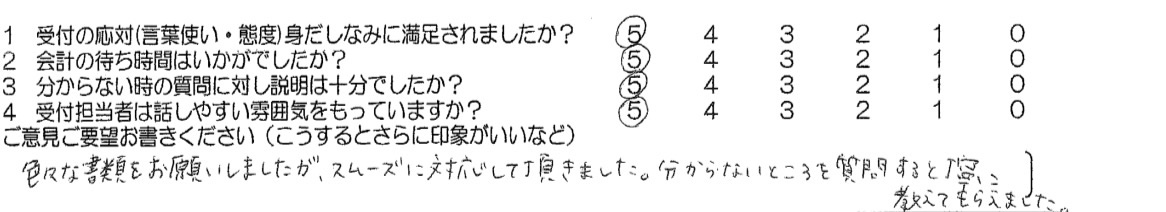 1 受付の応対(言葉使い・態度)身だしなみに満足されましたか? 5 4 3 2 1 0
2 会計の待ち時間はいかがでしたか? 5 4 3 2 1 0
3 分からない時の質問に対し説明は十分でしたか? 5 4 3 2 1 0
4 受付担当者は話しやすい雰囲気をもっていますか? 5 4 3 2 1 0
ご意見ご要望お書きください(こうするとさらに印象がいいなど)
色々な書類をお願いしましたが、スムーズに対応して頂きました。分からないところを質問すると丁寧に
教えてもらえました。